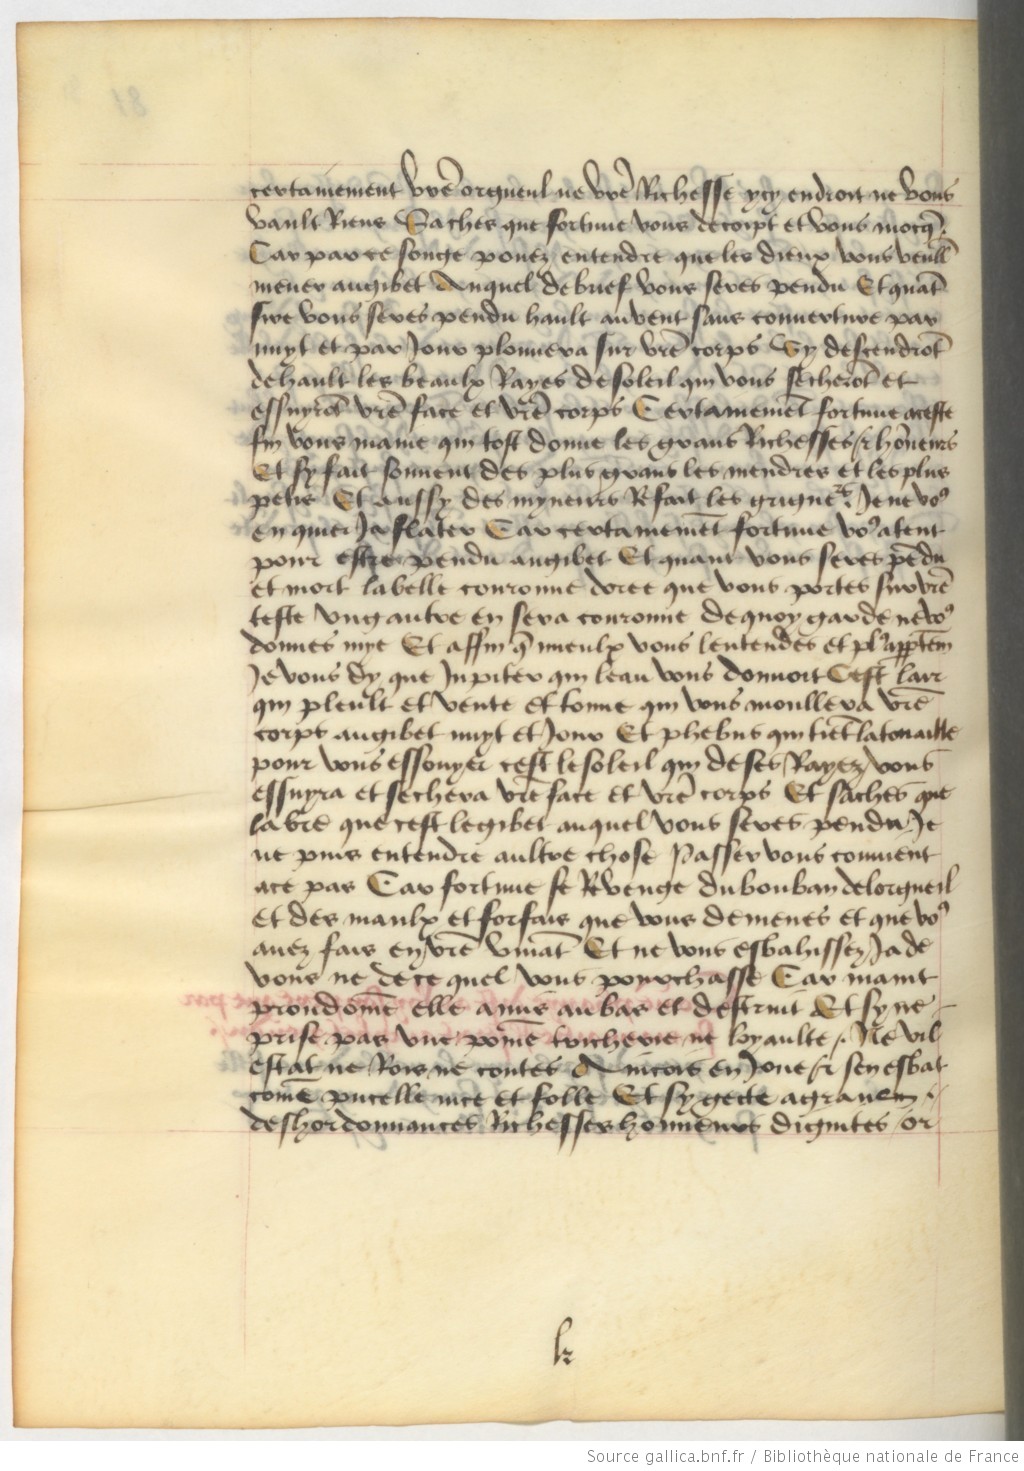 certainement vr̃e orgueul ne vr̃e Richesse ycy endroit ne vous
vault Riens Saches que fortune vous decoipt et vous mocq̃.
Car par ce songe pouez entendre que les dieux vous veull̃
mener augibet Auquel de brief vous seres pendu Et quãt
sire vous seres pendu hault au vent sans couverture par
nuyt et par Jour plouuera sur vr̃e corps Sy descendrõt
dehault les beaulx Rayes de soleil qui vous secherõt et
essuyrõt vr̃e face et vr̃e corps Certainemẽt fortune aceste
fin vous maine qui tost donne les grans Richesses & hõneurs
Et sy fait souuent des plus grans les mendres et les plus
petis Et aussy des myneurs Refait les grigne². Je ne voꝰ
en quier Ja flater Car certainemẽt fortune voꝰ atent
pour estre pendu augibet Et quant vous seres pẽdu
et mort labelle couronne doree que vous portes sur vr̃e
teste Ung autre en sera couronne dequoy garde ne voꝰ
donnes mye Et affin q̃ mieulx vous lentendes et plꝰ app̃tem̃
Je vous dy que Jupiter qui leau vous donnoit Cest lair
qui pleult et vente et tonne qui vous moullera vr̃e
corps augibet nuyt et Jour Et phebus qui tiẽt la touaille
pour vous essouyer cest lesoleil qui de ses Rayez vous
essuyra et sechera vr̃e face et vr̃e corps Et saches que
labr̃e que cest legibet auquel vous seres pendu. Je
ne puis entendre aultre chose Passer vous conuient
ace pas Car fortune se Revenge du bouban delorgueil
et des maulx et forfais que vous demenes et que voꝰ
auez fais en vr̃e viuãt Et ne vous esbahissez Ja de
vous ne de ce quel vous pourchasse Car maint
proudom̃e elle a mis au bas et destruit Et sy ne
prise pas une pom̃e tricherie ne loyaulte. Ne vil
estat ne Rois ne contes Aincois en Joue & sen esbat
com̃e pucelle nice et folle Et sy gecte a grauem.
deshordonnances Richesses honneurs dignites or
k
Source gallica.bnf.fr / Bibliothèque nationale de France